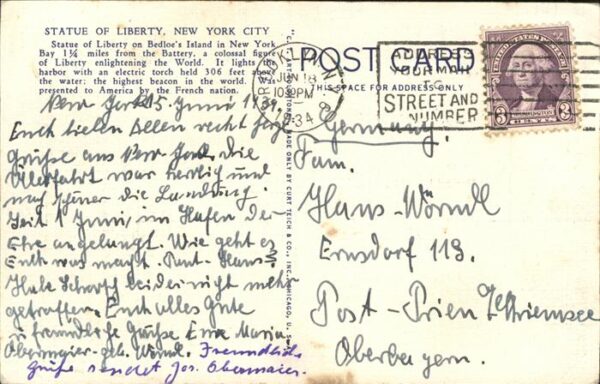 STATUE OF LIBERTY, NEW YORK CITY
Statue of Liberty on Bedloe's Island in New York
Bay 1¾ miles from the Battery, a colossal figure
of Liberty enlightening the World. It lights
harbor with an electric torch held 306 feet above
water; the highest beacon in the world. Was
presented to America by the French nation.
New York 15. Juni 1934.
Euch lieben Allen recht
Grüße aus New York. Die
Überfahrt war herrlich und
noch schöner die Landung.
Seit 1 Juni, im Hafen der
Ehe angelangt. Wie geht es
Euch was macht.
leider nicht mehr
getroffen. Euch alles Gute
u. freundliche Grüße Eure Maria
Obermaier geb. Wörndl. Freundliche
Grüße sendet Jos. Obermaier.
MADE ONLY BY CURT TEICH & CO., INC., CHICAGO, U. S.
POST CARD
THIS SPACE FOR ADDRESS ONLY
JUN 18
10 PM
1934
ADDRESS
YOUR MAIL
STREET AND
NUMBER
UNITED STATES POSTAGE
3 3
Germany.
Fam.
Hans Wörndl
Ernsdorf 113.
Post-Prien Chiemsee
Oberbayern.